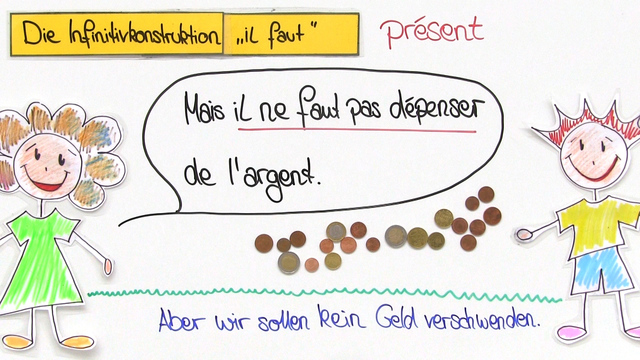 Die Infinitivkonstruktion „il faut“
présent
Mais il ne faut pas dépenser
de l'argent.
Aber wir sollen kein Geld verschwenden.